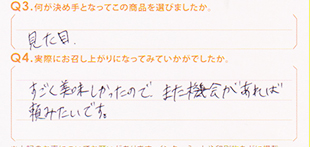 Q3.何が決め手となってこの商品を選びましたか。
見た目.
Q4.実際にお召し上がりになってみていかがでしたか。
すごく美味しかったので また機会があれば
頼みたいです。